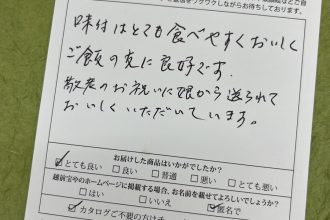 をワクワクしながらお待ちしております。
味付はとても食べやすくおいしく
ご飯の友に良好です.
敬老のお祝いに娘から送られて
おいしくいただいています。
お届けした商品はいかがでしたか?
☑とても良い □良い □普通 □悪い □とても悪い
越前宝やのホームページに掲載する場合、お名前を載せてよろしいでしょうか?
□はい □いいえ ☑匿名で
☑カタログご不要の方は